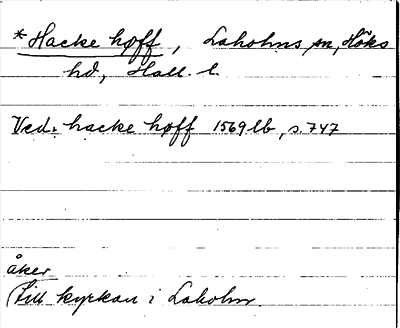 *Hacke hoff, Laholms sn, Höks
hd, Hall. l.
Ved: hacke hoff 1569 lb, s. 747
åker
(till kyrkan i Laholm.